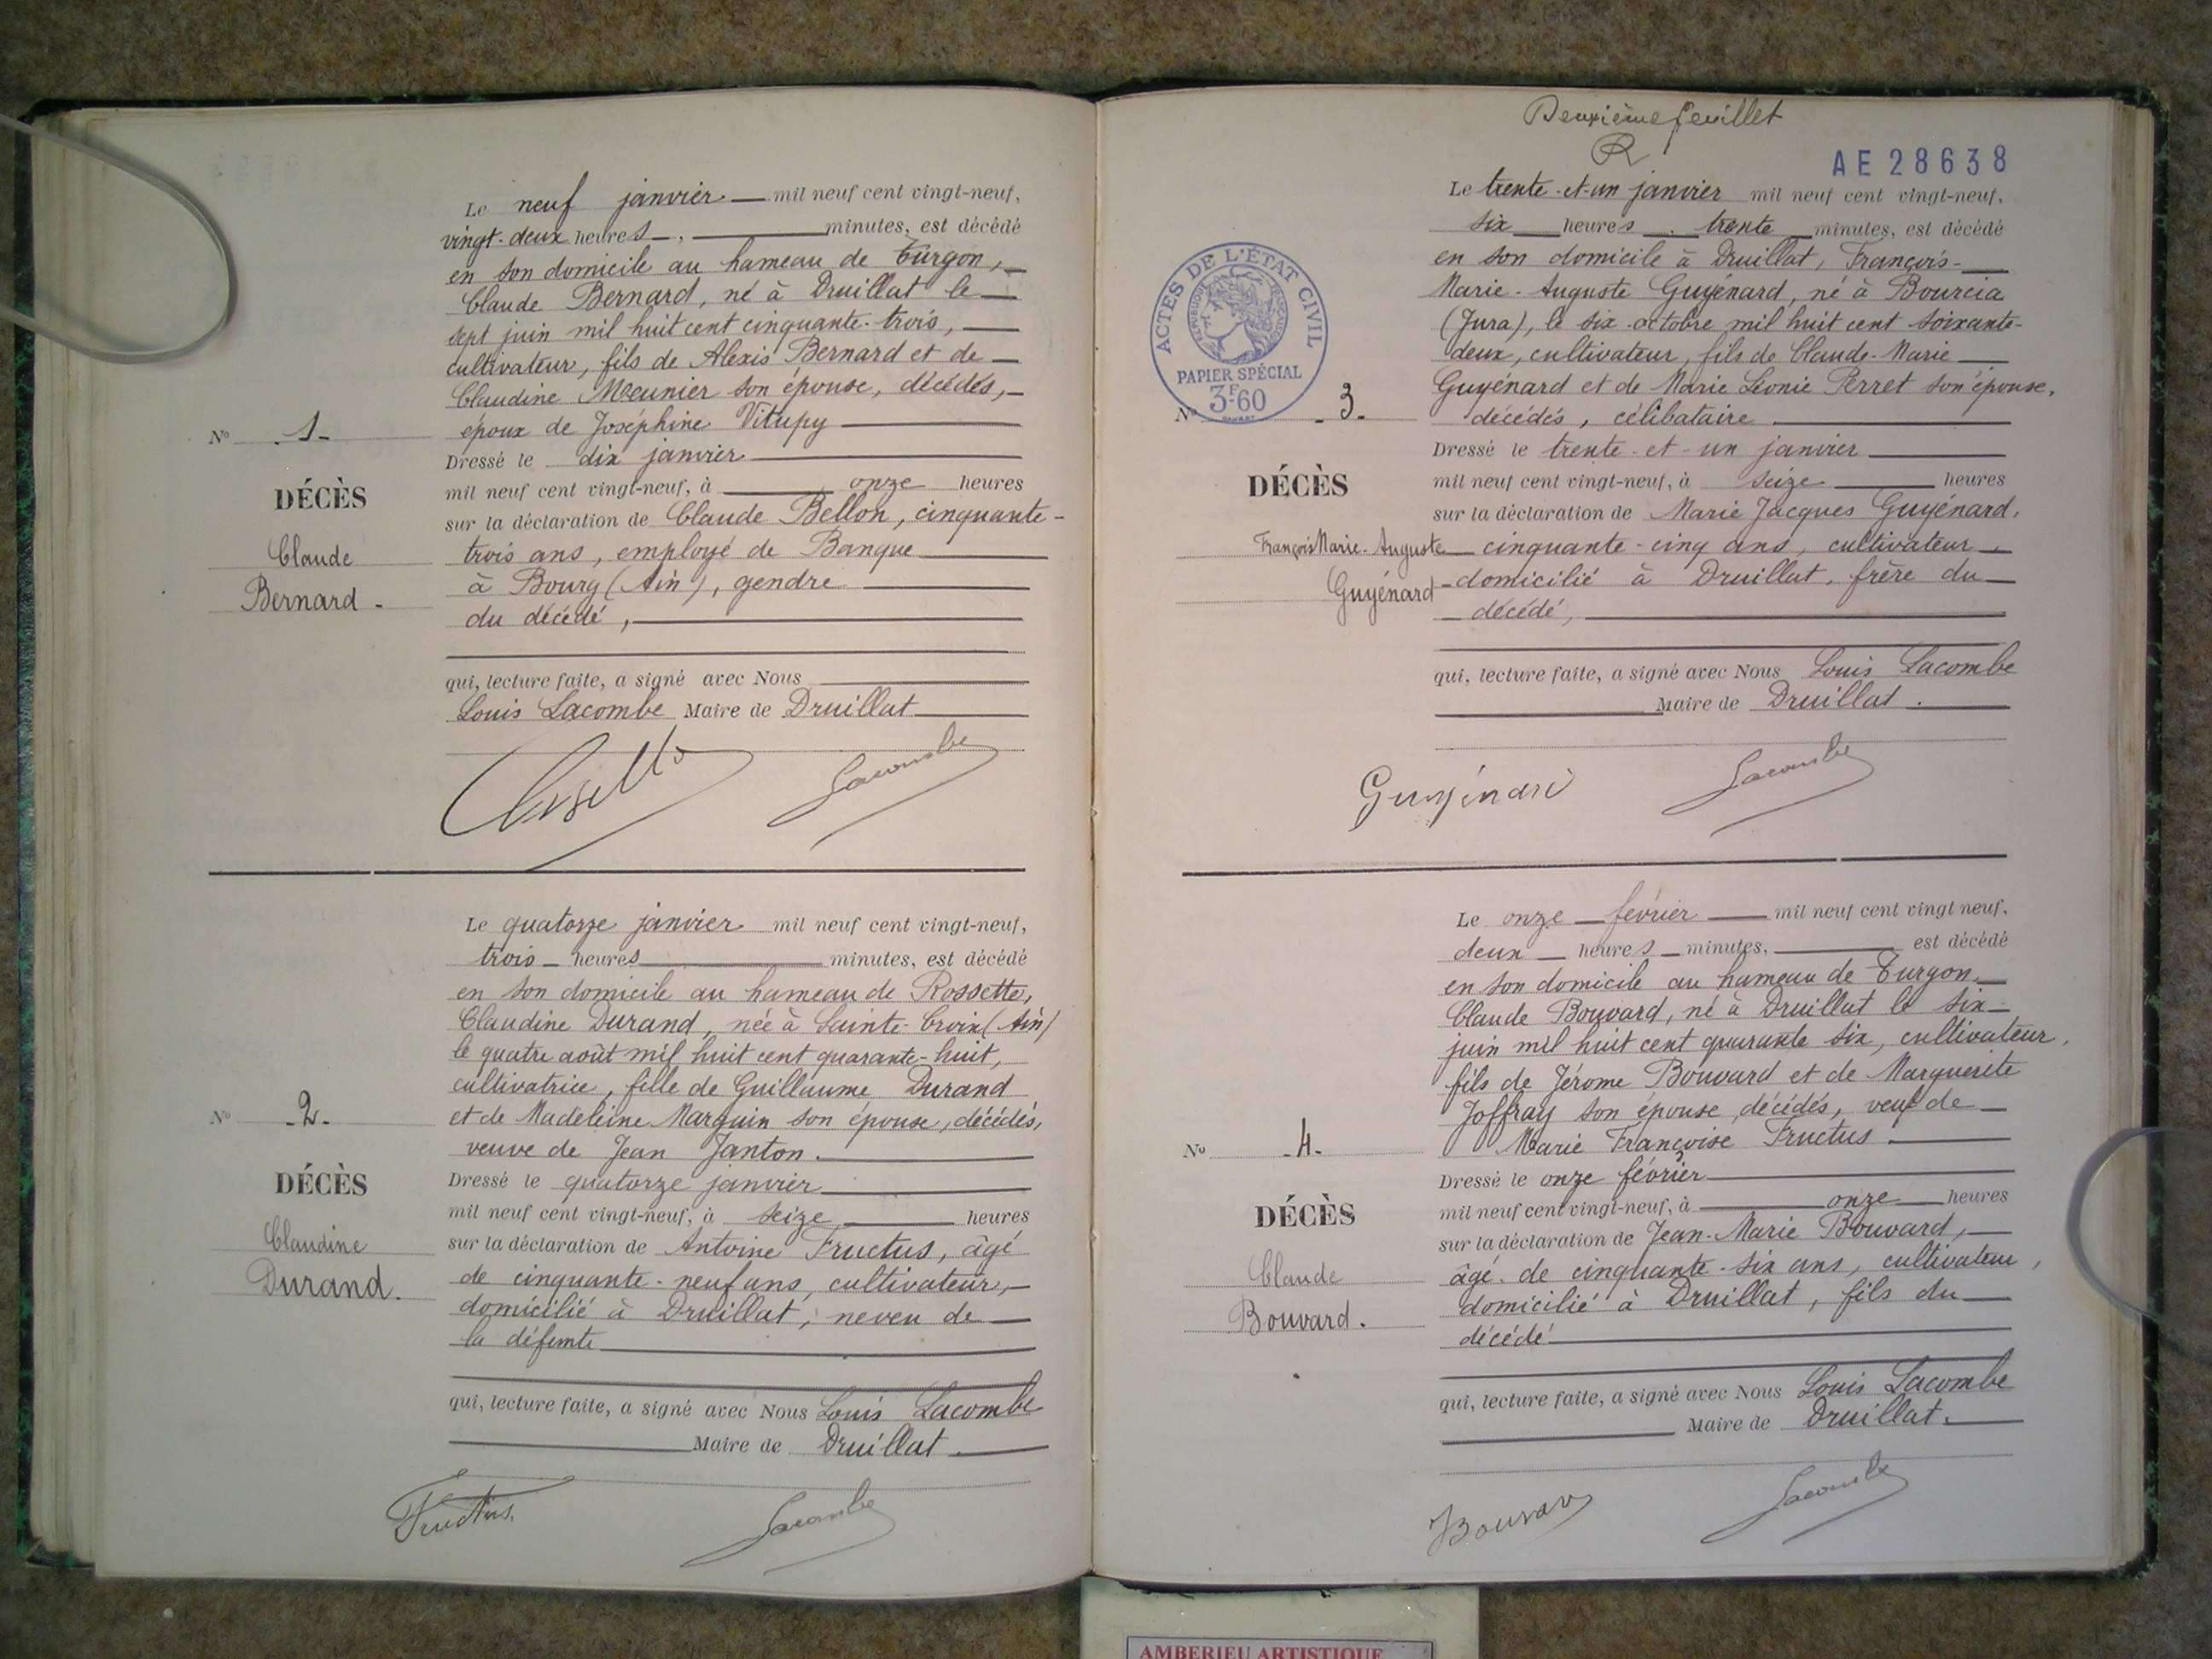 Le neuf janvier mil neuf cent vingt-neuf,
vingt-deux heures, minutes, est décédé
en son domicile au hameau de Turgon,
Claude Bernard, né à Druillat le
sept juin mil huit cent cinquante-trois,
cultivateur, fils de Alexis Bernard et de
Claudine Meunier son épouse, décédés,
époux de Joséphine Vitupy
No 1-
Dressé le dix janvier
mil neuf cent vingt-neuf, à onze heures
DÉCÈS
sur la déclaration de Claude Bellon, cinquante-
Claude
trois ans, employé de Banque
à Bourg (Ain), gendre
Bernard -
du décédé,
qui, lecture faite, a signé avec Nous
Louis Lacombe Maire de Druillat
Lacombe
Le quatorze janvier mil neuf cent vingt-neuf,
trois heures minutes, est décédé
en son domicile au hameau de Rossette,
Claudine Durand, née à Sainte-Croix (Ain)
le quatre août mil huit cent quarante-huit,
cultivatrice, fille de Guillaume Durand
No -2-
et de Madeleine Marguin son épouse, décédés,
veuve de Jean Janton.
DÉCÈS
Dressé le quatorze janvier
mil neuf cent vingt-neuf, à seize heures
Claudine
sur la déclaration de Antoine Fructus, âgé
Durand.
de cinquante-neuf ans, cultivateur,
domicilié à Druillat, neveu de
la défunte
qui, lecture faite, a signé avec Nous Louis Lacombe
Maire de Druillat.
Fructus.
Lacombe
Deuxième feuillet
R
AE 28638
Le trente-et-un janvier mil neuf cent vingt-neuf,
six heures trente minutes, est décédé
en son domicile à Druillat, François-
Marie-Auguste Guyénard, né à Bourcia
(Jura), le six octobre mil huit cent soixante-
deux, cultivateur, fils de Claude-Marie
Guyénard et de Marie Léonie Perret son épouse,
décédés, célibataire
ACTES DE L'ÉTAT CIVIL
RÉPUBLIQUE FRANÇAISE
PAPIER SPÉCIAL
3F60
No -3-
Dressé le trente-et-un janvier
DÉCÈS
mil neuf cent vingt-neuf, à seize heures
sur la déclaration de Marie Jacques Guyénard,
François Marie-Auguste
cinquante-cinq ans, cultivateur
Guyénard
domicilié à Druillat, frère du
décédé,
qui, lecture faite, a signé avec Nous Louis Lacombe
Maire de Druillat.
Guyénard
Lacombe
Le onze février mil neuf cent vingt neuf,
deux heures minutes, est décédé
en son domicile au hameau de Turgon
Claude Bouvard, né à Druillat le six
juin mil huit cent quarante six, cultivateur,
fils de Jérome Bouvard et de Marguerite
Joffray son épouse, décédés, veuf de
Marie Françoise Fructus.
No -4-
Dressé le onze février
mil neuf cent vingt-neuf, à onze heures
DÉCÈS
sur la déclaration de Jean-Marie Bouvard,
Claude
âgé de cinquante-six ans, cultivateur,
Bouvard.
domicilié à Druillat, fils du
décédé
qui, lecture faite, a signé avec Nous Louis Lacombe
Maire de Druillat.
Bouvard
Lacombe
AMBERIEU ARTISTIQUE